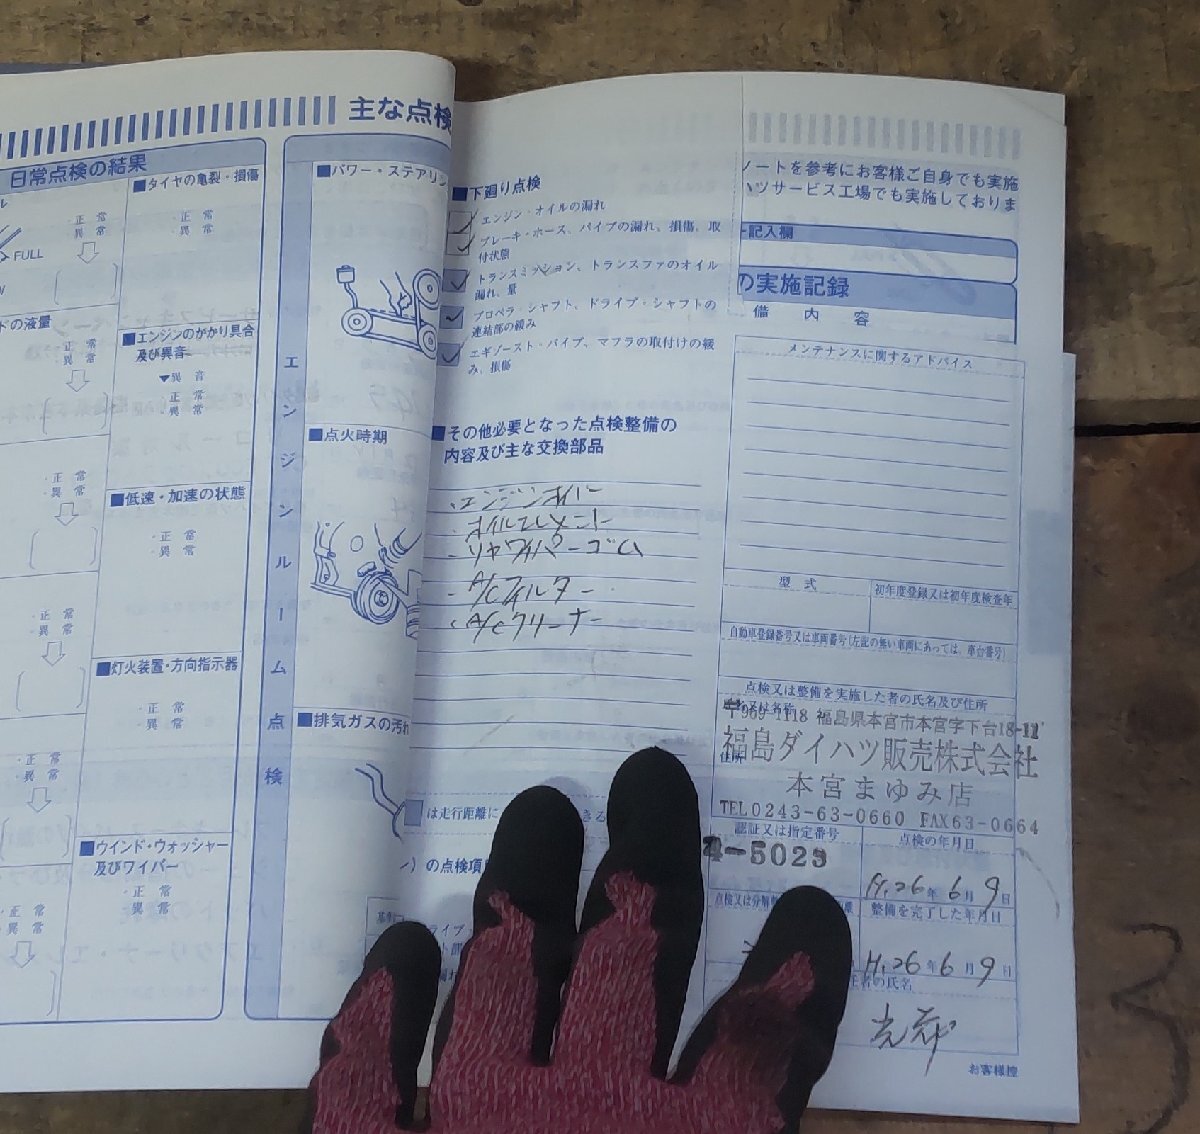 主な点検
日常点検の結果
FULL
ドの液量
正 常
異 常
正 常
異 常
正 常
異 常
正 常
異 常
正 常
異 常
正 常
異 常
■タイヤの亀裂・損傷
正 常
異 常
■エンジンのかかり具合
及び異音
▼異 音
正 常
異 常
■低速・加速の状態
正 常
異 常
■灯火装置・方向指示器
正 常
異 常
■ウインド・ウォッシャー
及びワイパー
正 常
異 常
エンジンルーム点検
■パワー・ステアリン
■点火時期
■排気ガスの汚れ
■下廻り点検
エンジン・オイルの漏れ
ブレーキ・ホース、パイプの漏れ、損傷、取
付状態
トランスミッション、トランスファのオイル
漏れ、量
プロペラ・シャフト、ドライブ・シャフトの
連結部の緩み
エギゾースト・パイプ、マフラの取付けの緩
み、損傷
■その他必要となった点検整備の
内容及び主な交換部品
・エンジンオイル
・オイルエレメント
・リヤワイパーゴム
・A/Cフィルター
・A/Cクリーナー
は走行距離に
きる
）の点検項
ノートを参考にお客様ご自身でも実施
ハツサービス工場でも実施しておりま
記入欄
の実施記録
備 内 容
メンテナンスに関するアドバイス
型 式
初年度登録又は初年度検査年
自動車登録番号又は車両番号(左記の無い車両にあっては、車台番号)
点検又は整備を実施した者の氏名及び住所
氏名又は名称
〒969-1118 福島県本宮市本宮字下台18-11
福島ダイハツ販売株式会社
住所
本宮まゆみ店
TEL0243-63-0660 FAX63-0664
認証又は指定番号
4-5023
点検の年月日
H.26年6月9日
点検又は分解
整備を完了した年月日
H.26年6月9日
任者の氏名
お客様控